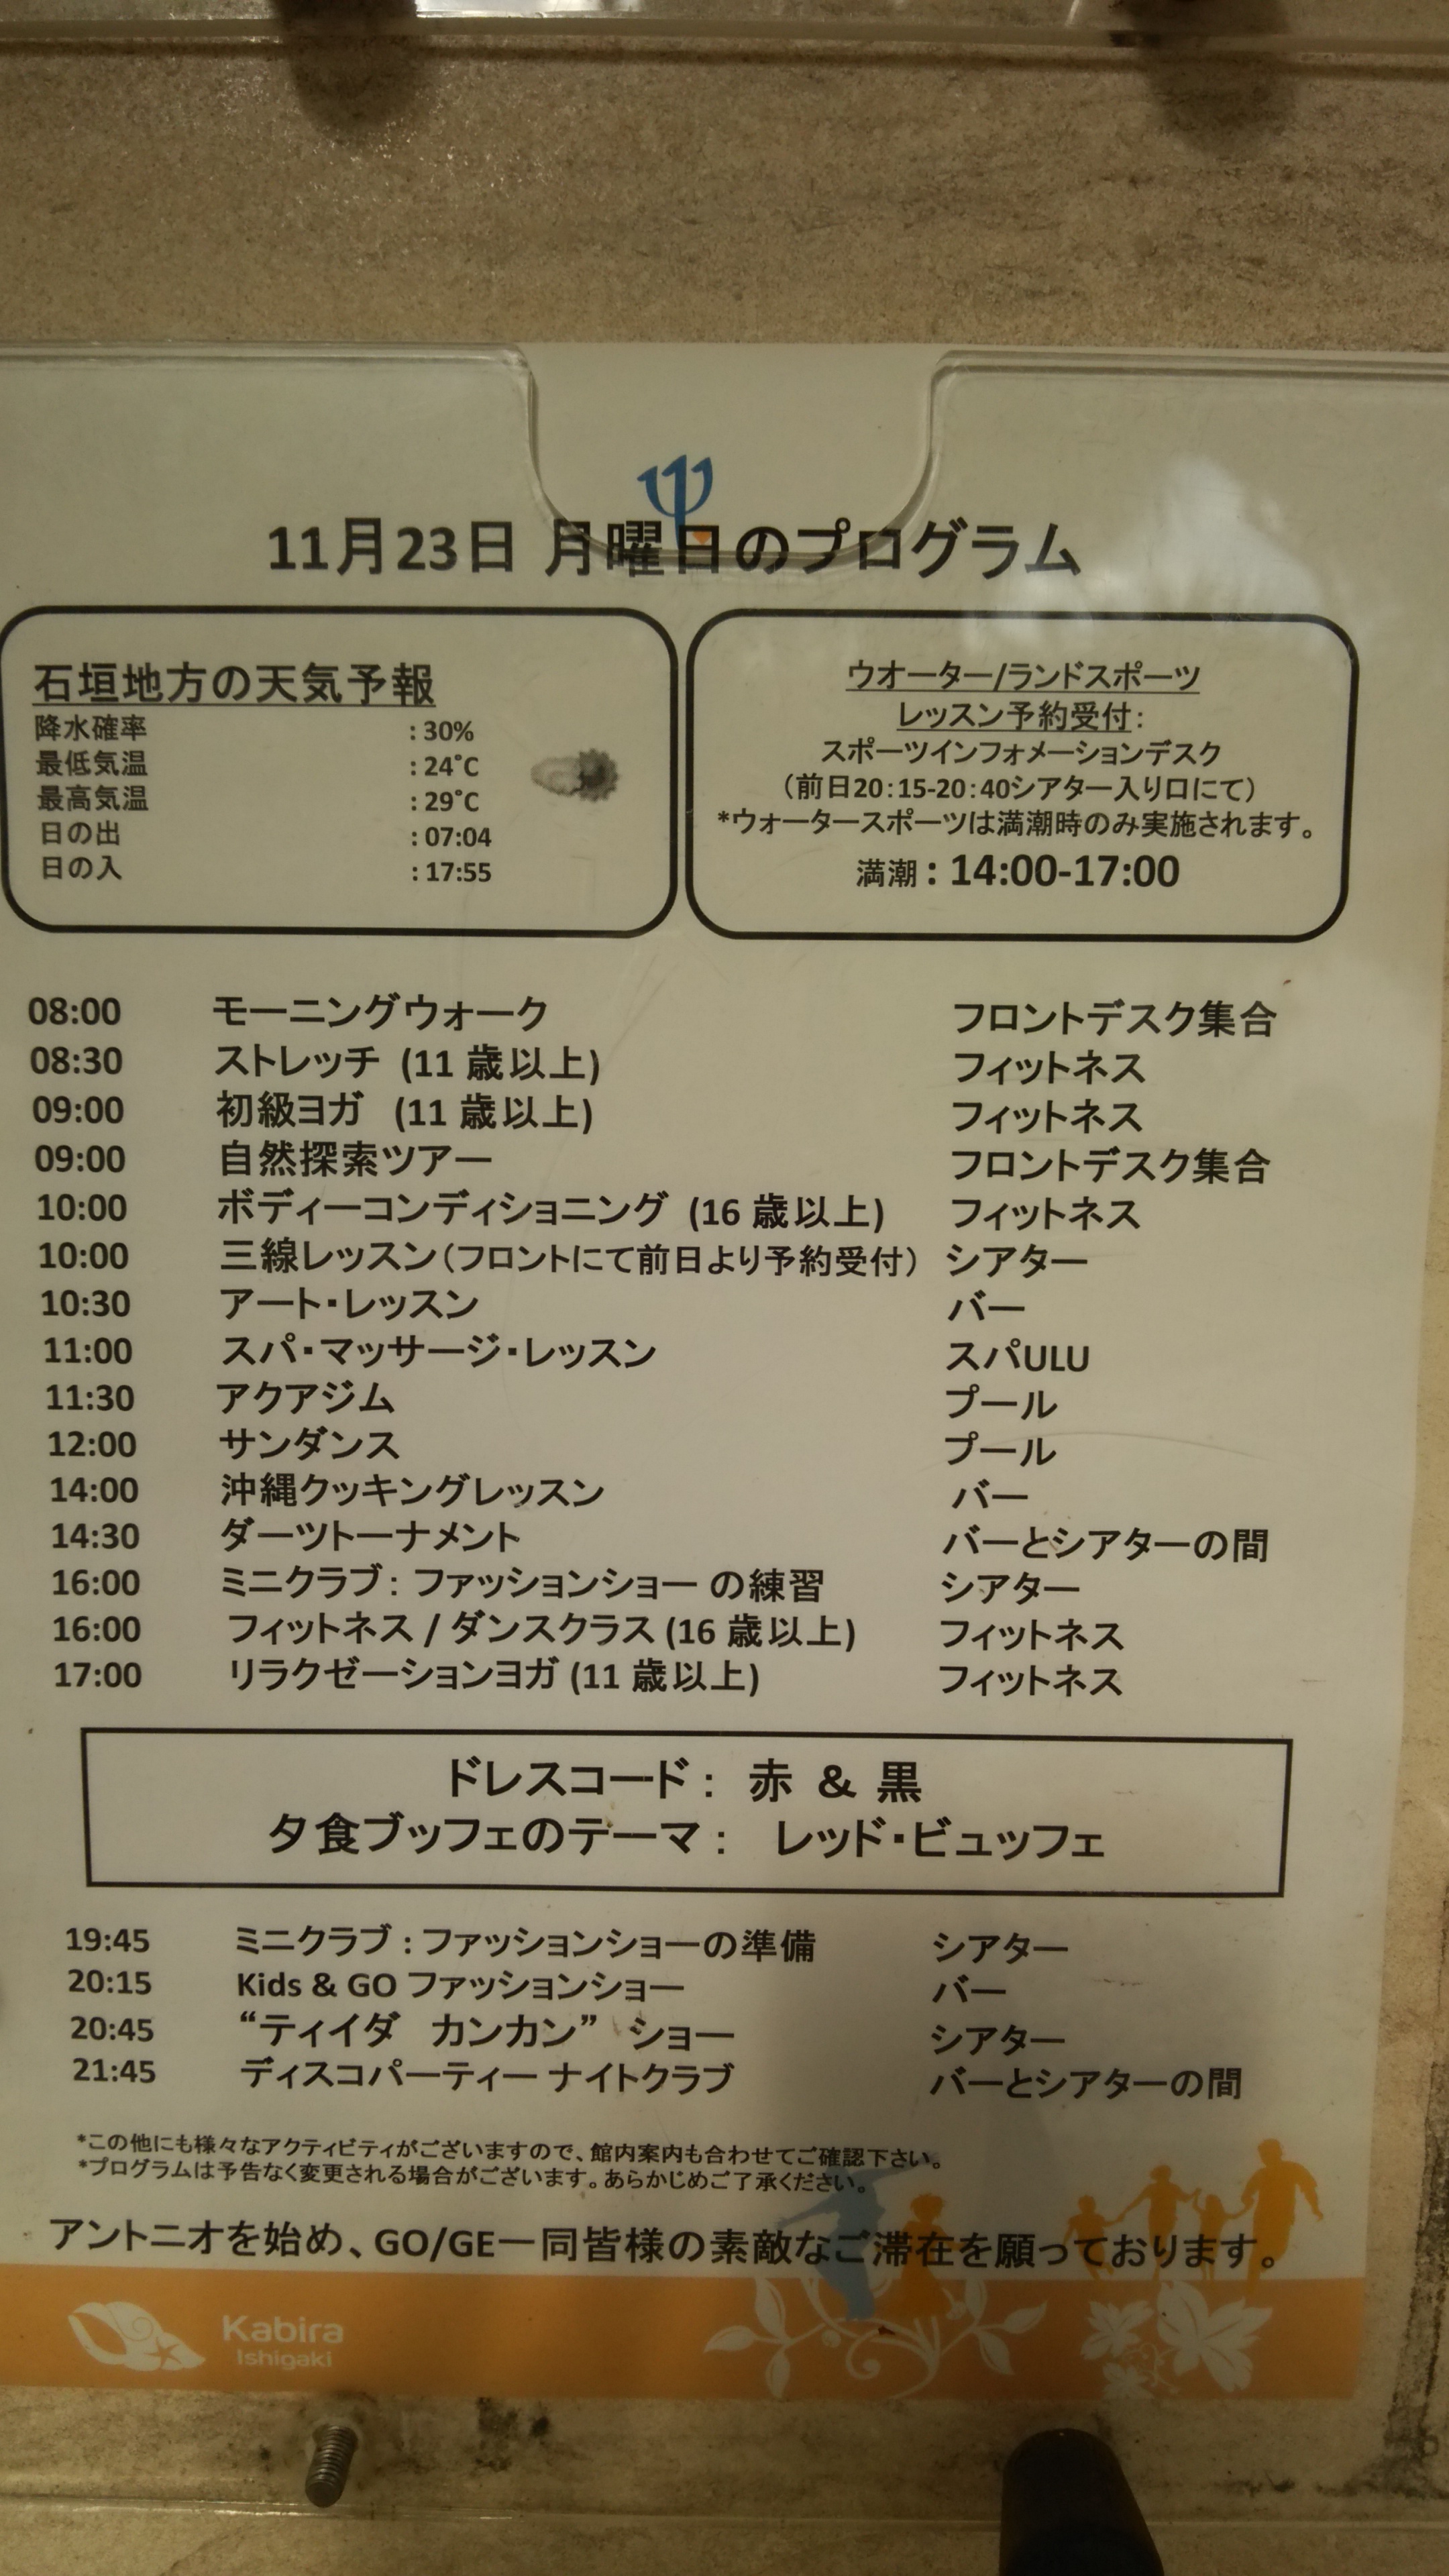 11月23日 月曜日のプログラム
石垣地方の天気予報
降水確率 : 30%
最低気温 : 24˚C
最高気温 : 29˚C
日の出 : 07:04
日の入 : 17:55
ウオーター/ランドスポーツ
レッスン予約受付:
スポーツインフォメーションデスク
(前日20:15-20:40シアター入り口にて)
*ウォータースポーツは満潮時のみ実施されます。
満潮 : 14:00-17:00
08:00 モーニングウォーク フロントデスク集合
08:30 ストレッチ (11 歳以上) フィットネス
09:00 初級ヨガ (11 歳以上) フィットネス
09:00 自然探索ツアー フロントデスク集合
10:00 ボディーコンディショニング (16 歳以上) フィットネス
10:00 三線レッスン(フロントにて前日より予約受付) シアター
10:30 アート・レッスン バー
11:00 スパ・マッサージ・レッスン スパULU
11:30 アクアジム プール
12:00 サンダンス プール
14:00 沖縄クッキングレッスン バー
14:30 ダーツトーナメント バーとシアターの間
16:00 ミニクラブ: ファッションショー の練習 シアター
16:00 フィットネス / ダンスクラス (16 歳以上) フィットネス
17:00 リラクゼーションヨガ (11 歳以上) フィットネス
ドレスコード : 赤 & 黒
夕食ブッフェのテーマ : レッド・ビュッフェ
19:45 ミニクラブ : ファッションショーの準備 シアター
20:15 Kids & GO ファッションショー バー
20:45 “ティイダ カンカン” ショー シアター
21:45 ディスコパーティー ナイトクラブ バーとシアターの間
*この他にも様々なアクティビティがございますので、館内案内も合わせてご確認下さい。
*プログラムは予告なく変更される場合がございます。あらかじめご了承ください。
アントニオを始め、GO/GE一同皆様の素敵なご滞在を願っております。
Kabira
Ishigaki